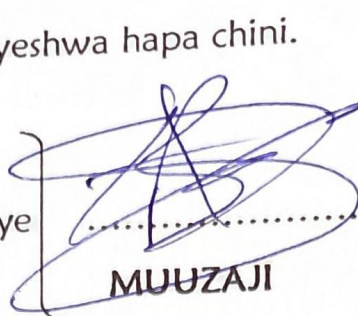 yeshwa hapa chini.
ye ....................
MUUZAJI